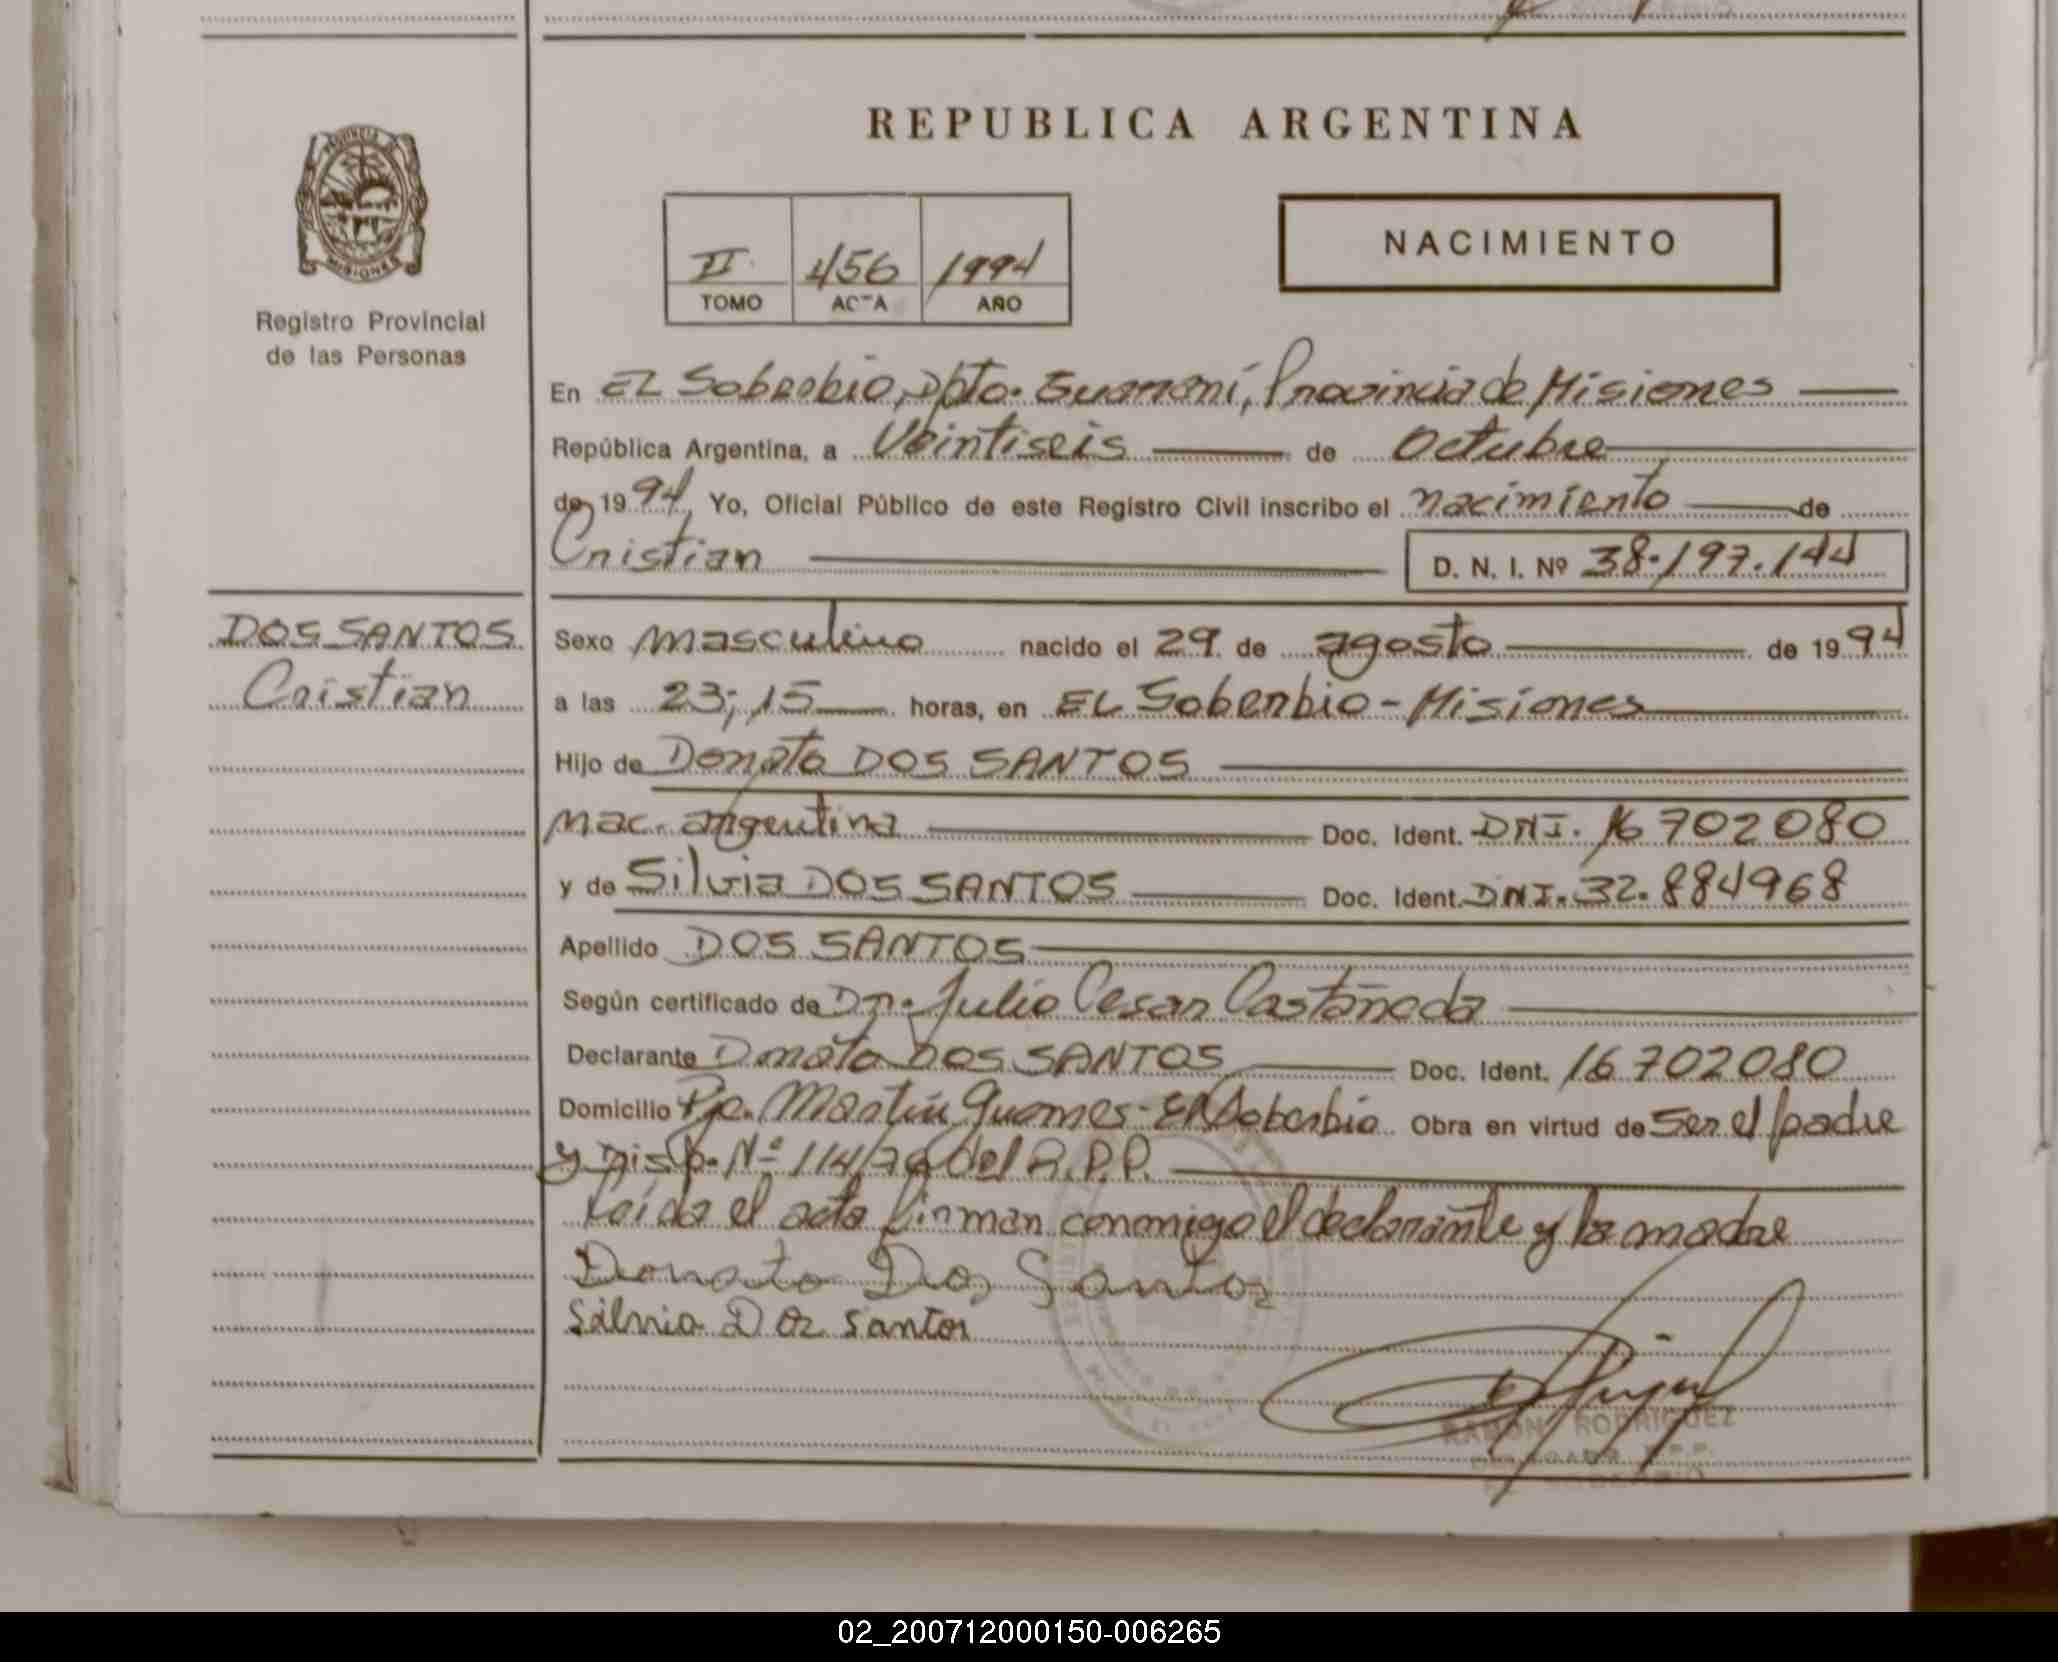 REPUBLICA ARGENTINA
PROVINCIA DE
MISIONES
Registro Provincial
de las Personas
II 456 1994
TOMO ACTA AÑO
NACIMIENTO
En EL Soberbio, Dpto. Guaraní, Provincia de Misiones
República Argentina, a Veintiseis de Octubre
de 1994 Yo, Oficial Público de este Registro Civil inscribo el nacimiento de
Cristian D. N. I. Nº 38.197.144
DOS SANTOS
Cristian
Sexo masculino nacido el 29 de agosto de 1994
a las 23;15 horas, en EL Soberbio - Misiones
Hijo de Donato DOS SANTOS
nac. argentina Doc. Ident. DNI. 16702080
y de Silvia DOS SANTOS Doc. Ident. DNI. 32.884968
Apellido DOS SANTOS
Según certificado de Dr. Julio Cesar Castañeda
Declarante Donato DOS SANTOS Doc. Ident. 16702080
Domicilio Pje. Martin Guemes - El Soberbio Obra en virtud de Ser el padre
y Disp. Nº 114/79 del R.P.P.
Leída el acta firman conmigo el declarante y la madre
Donato Dos Santos
Silvia Dos Santos
RAMON RODRIGUEZ
02_200712000150-006265